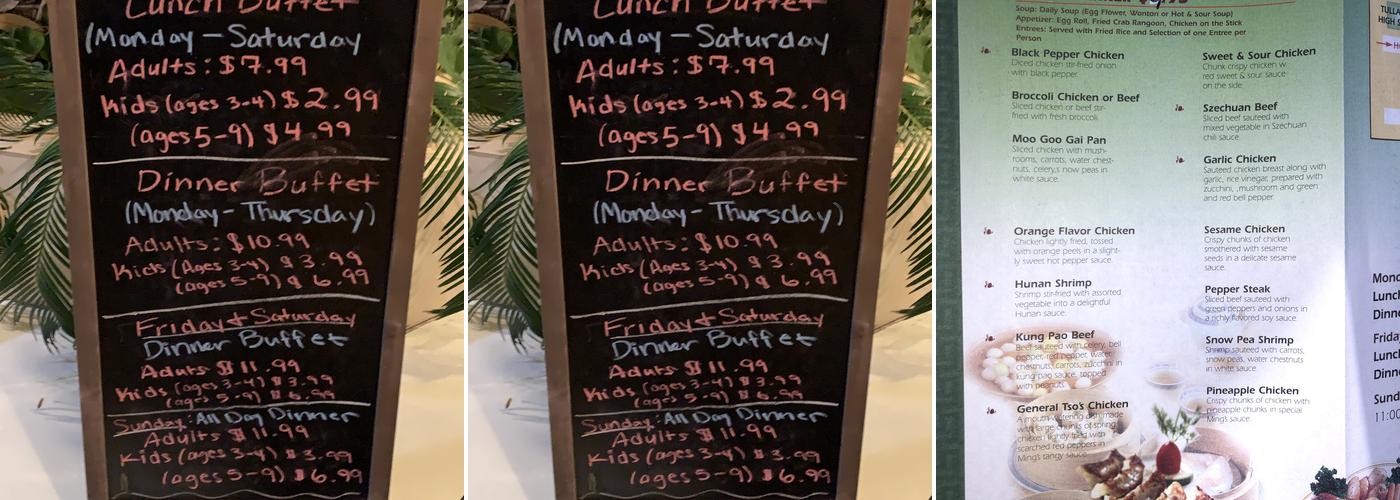 Lunch Buffet
(Monday - Saturday
Adults: $7.99
Kids (ages 3-4) $2.99
(ages 5-9) $4.99
Dinner Buffet
(Monday - Thursday)
Adults: $10.99
Kids (Ages 3-4) $3.99
(ages 5-9) $6.99
Friday + Saturday
Dinner Buffet
Aduts $11.99
Kids (ages 3-4) $3.99
(ages 5-9) $6.99
Sunday: All Day Dinner
Adults $11.99
Kids (ages 3-4) $3.99
(ages 5-9) $6.99
Lunch Buffet
(Monday - Saturday
Adults: $7.99
Kids (ages 3-4) $2.99
(ages 5-9) $4.99
Dinner Buffet
(Monday - Thursday)
Adults: $10.99
Kids (Ages 3-4) $3.99
(ages 5-9) $6.99
Friday + Saturday
Dinner Buffet
Aduts $11.99
Kids (ages 3-4) $3.99
(ages 5-9) $6.99
Sunday: All Day Dinner
Adults $11.99
Kids (ages 3-4) $3.99
(ages 5-9) $6.99
Soup: Daily Soup (Egg Flower, Wonton or Hot & Sour Soup)
Appetizer: Egg Roll, Fried Crab Rangoon, Chicken on the Stick
Entrees: Served with Fried Rice and Selection of one Entree per
Person
Black Pepper Chicken
Diced chicken stir-fried onion
with black pepper.
Broccoli Chicken or Beef
Sliced chicken or beef stir-
fried with fresh broccoli.
Moo Goo Gai Pan
Sliced chicken with mush-
rooms, carrots, water chest-
nuts, celery,s now peas in
white sauce.
Orange Flavor Chicken
Chicken lightly fried, tossed
with orange peels in a slight-
ly sweet hot pepper sauce.
Hunan Shrimp
Shrimp stir-fried with assorted
vegetable into a delightful
Hunan sauce.
Kung Pao Beef
Beef sauteed with celery, bell
pepper, red pepper, water
chestnuts, carrots, zucchini in
kung pao sauce, topped
with peanuts.
General Tso's Chicken
A mouth-watering dish made
with large chunks of spring
chicken lightly fried with
scarched red peppers in
Ming's tangy sauce.
Sweet & Sour Chicken
Chunk crispy chicken w.
red sweet & sour sauce
on the side.
Szechuan Beef
Sliced beef sauteed with
mixed vegetable in Szechuan
chili sauce.
Garlic Chicken
Sauteed chicken breast along with
garlic, rice vinegar, prepared with
zucchini, ,mushroom and green
and red bell pepper.
Sesame Chicken
Crispy chunks of chicken
smothered with sesame
seeds in a delicate sesame
sauce.
Pepper Steak
Sliced beef sauteed with
green peppers and onions in
a richly flavored soy sauce.
Snow Pea Shrimp
Shrimp sauteed with carrots,
snow peas, water chestnuts
in white sauce.
Pineapple Chicken
Crispy chunks of chicken with
pineapple chunks in special
Ming's sauce.
TULLA
HIGH S
Mond
Lunch
Dinne
Friday
Lunch
Dinne
Sund
11:00